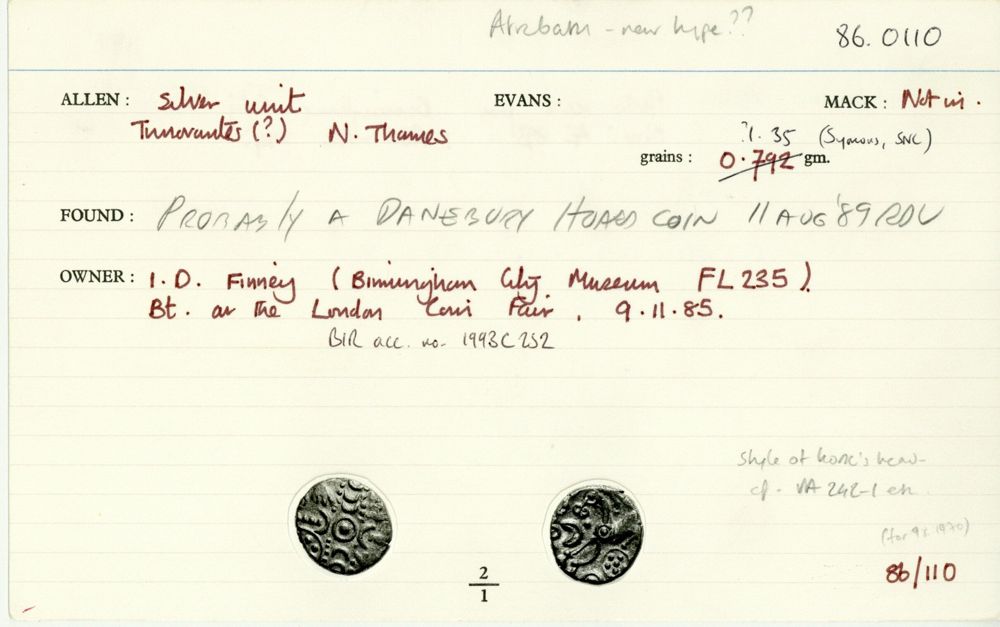 Atrebatn - new type??
86.0110
ALLEN : Silver unit EVANS : MACK : Not in.
Trinovantes (?) N. Thames
?1.35 (Symons, SNC)
grains : 0.792 gm.
FOUND : PROBABLY A DANEBURY HOARD COIN 11 AUG '89 RDV
OWNER : I.D. Finney (Birmingham City Museum FL 235).
Bt. at the London Coin Fair, 9.11.85.
BIR acc. no. 1993C252
Style of horse's head
cf. VA 242-1 etc.
86/110
2
1